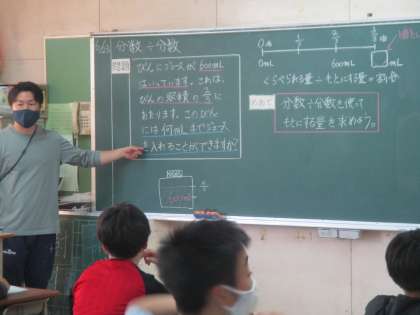 分数÷分数
びんにジュースが600mL
はいっています。これは、
びんの容積の
あたります。このびん
には何mLまでジュース
を入れることができますか？
600mL
0mL
600mL
くらべられる量÷もとにする量=割合
めあて
分数÷分数を使って
もとにする量を求めよう。